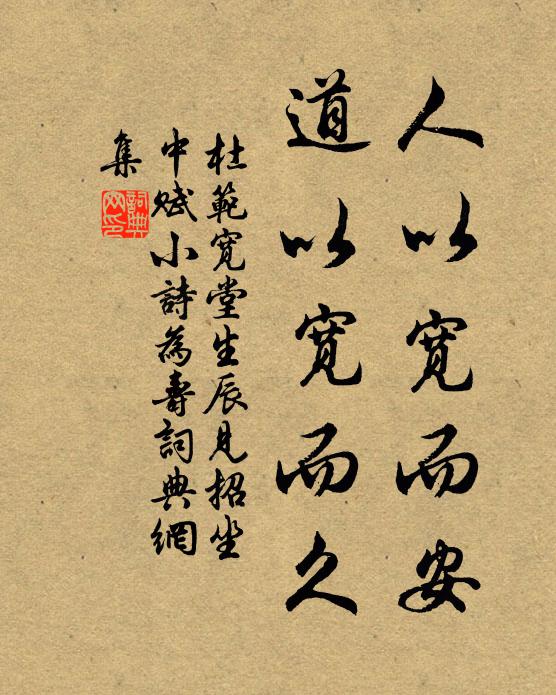 人以寬而安
道以寬而久
杜範寬堂生辰見招坐
中賦小詩為壽詞典網
集
詞典
网印